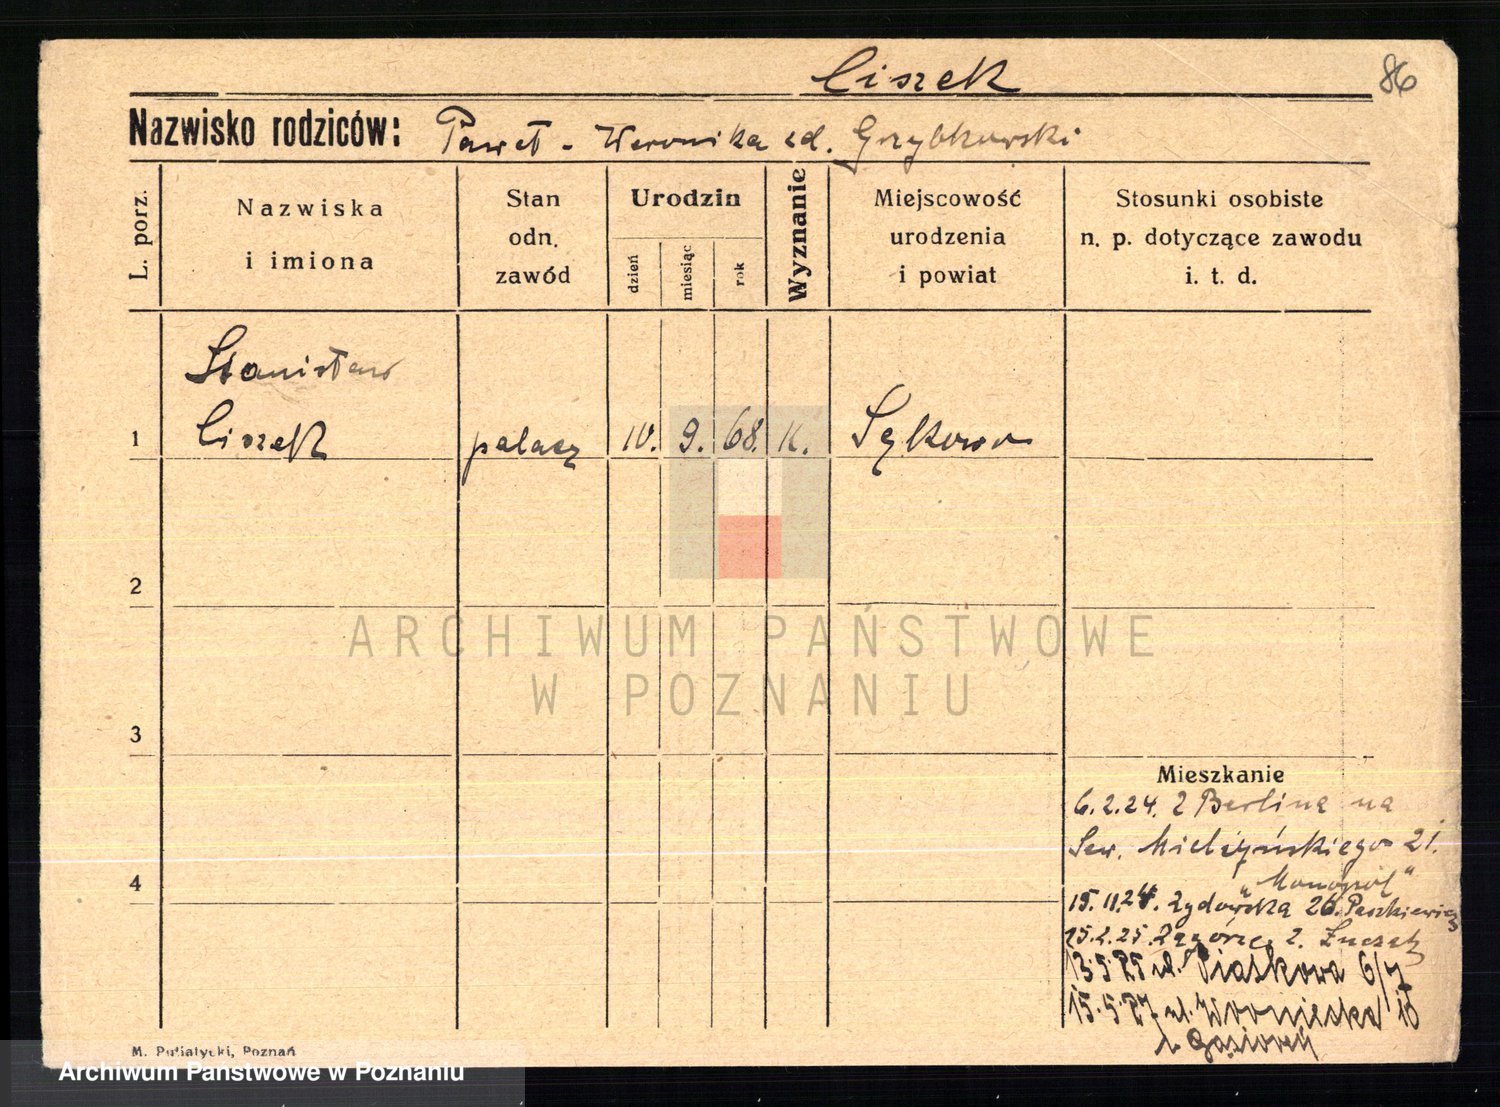 Ciszek
86
Nazwisko rodziców: Paweł - Weronika zd. Grzybkowski
L. porz.
Nazwiska
i imiona
Stan
odn.
zawód
Urodzin
dzień
miesiąc
rok
Wyznanie
Miejscowość
urodzenia
i powiat
Stosunki osobiste
n. p. dotyczące zawodu
i. t. d.
Stanisław
1 Ciszek palacz 10. 9. 68. k. Sękowo
2
ARCHIWUM PAŃSTWOWE
W POZNANIU
3
Mieszkanie
6.2.24. z Berlina na
Sew. Mielżyńskiego 21.
"Monopol"
4
15.11.24. Żydowska 26. Paszkiewicz
15.2.25. Zagórze 2.
13.5.25 ul. Piaskowa 6/7
15.5.27 ul. 16
u Gąsiorek
M. Putiatycki, Poznań
Archiwum Państwowe w Poznaniu